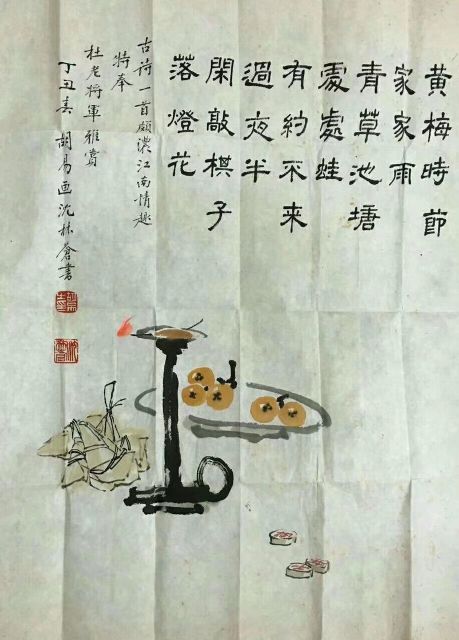 黄梅時節
家家雨
青草池塘
處處蛙
有約不來
過夜半
閑敲棋子
落燈花
古詩一首頗濃江南情趣
特奉
杜老将軍雅賞
丁丑春胡易画沈林蒼書